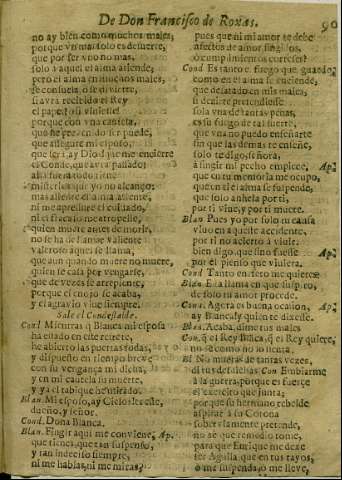 De Don Francisco de Roxas. 90
no ay bien como muchos males,
porque vn mal solo es de suerte,
que por ser vno no mas,
solo à aquel el alma atiende;
pero el alma en muchos males,
se consuela, o se divierte,
si avrà recibido el Rey
el papel? si
porque con vna
que he
que assegure mi esposo,
que
el Conde, que avrà passado;
misterios que yo no alcanço;
mas aliente el alma aliente,
ni me apressure el cuidado,
ni el me atropelle,
quien muere antes de morir,
no se ha de llamar valiente
valeroso aquel se llama,
que aun quando muere no muere,
quien se casa por vengarse,
que de vezes se arrepiente,
porque el enojo se acaba,
y el agravio vive siempre.
Sale el Condestable.
Cond. Mientras q̃ Blanca mi esposa
ha estado en este retrete,
he abierto las puertas todas,
y dispuesto en tiempo breve
con su vengança mi dicha,
y en mi cautela su muerte,
y ya el tabique he
Blan. Mi esposo, ay Cielos!
dueño, y señor.
Cond. Doña Blanca.
Blan. Fingir aqui me conviene, Ap.
que tienes, que tan suspenso,
y tan indeciso siempre,
ni me hablas, ni me miras?
pues que ni mi amor te debe
afectos de amor fingidos,
ò cumplimientos corteses?
Cond. Es tanto el fuego que guardo
como en el alma se enciende,
que desatado en mis males,
si dezirte pretendiesse
sola vna de tantas penas,
es su fuego de tal suerte,
que vna no puedo enseñarte
sin que las demas te enseñe,
solo te digo, señora,
à fingir mi pecho empiece, Ap.
que en tu mentoria me ocupo,
que en ti el alma se suspende,
que solo anhela por ti,
por ti vive, y por ti muere.
Blan. Pues yo por solo tu causa
vivo en aquesse accidente,
por ti no acierto à vivir.
bien digo, que sino fuesse Ap.
por èl pienso que viviera.
Cond. Tanto en efeto me quieres?
Blan. Es a llama en que suspiro,
de solo tu amor procede.
Cond. Agora es buena ocasion, Ap.
ay Blanca! y quien te dixesse.
Blan. Acaba, dime tus males
Con. Q̃ el Rey Blanca, q̃ el Rey quiere,
no sè como no lo sienta.
Bl. No mueras de tantas vezes,
di tus desdichas Con Embiarme
à la guerra, porque es fuerça
el exercito que junta;
porque su hermano rebelde
aspirar à su Corona
sobervlamente pretende,
no se que remedio tome,
para que Enrique me dexe
ser Aguila que en tus rayos,
o me suspenda, o me lleve,